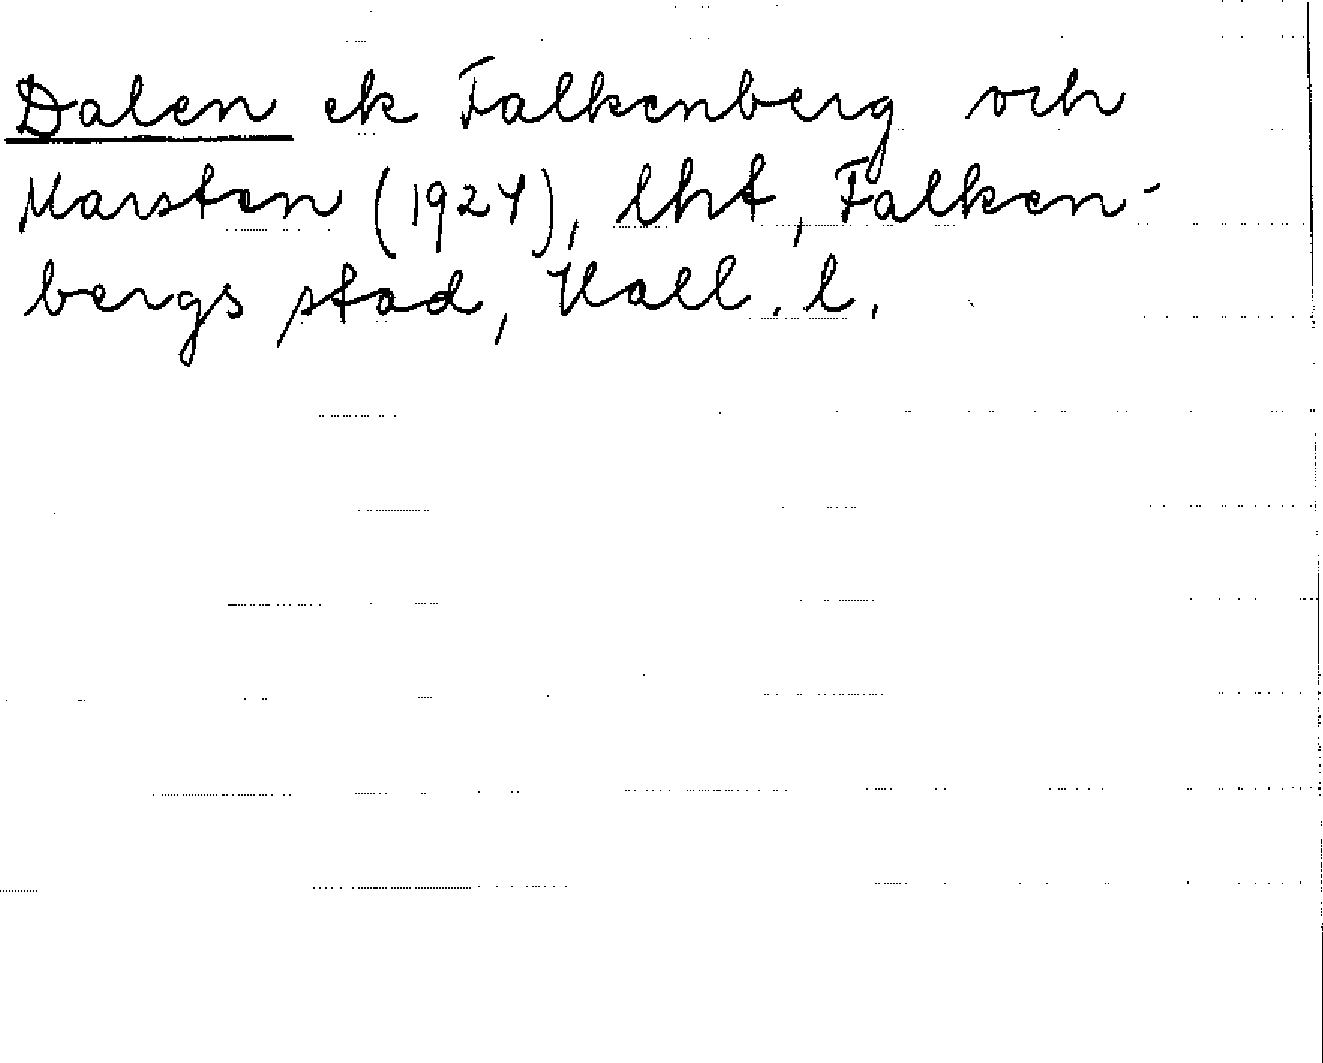 Dalen ek Falkenberg och
Marsten (1924), lht, Falken-
bergs stad, Hall. l.